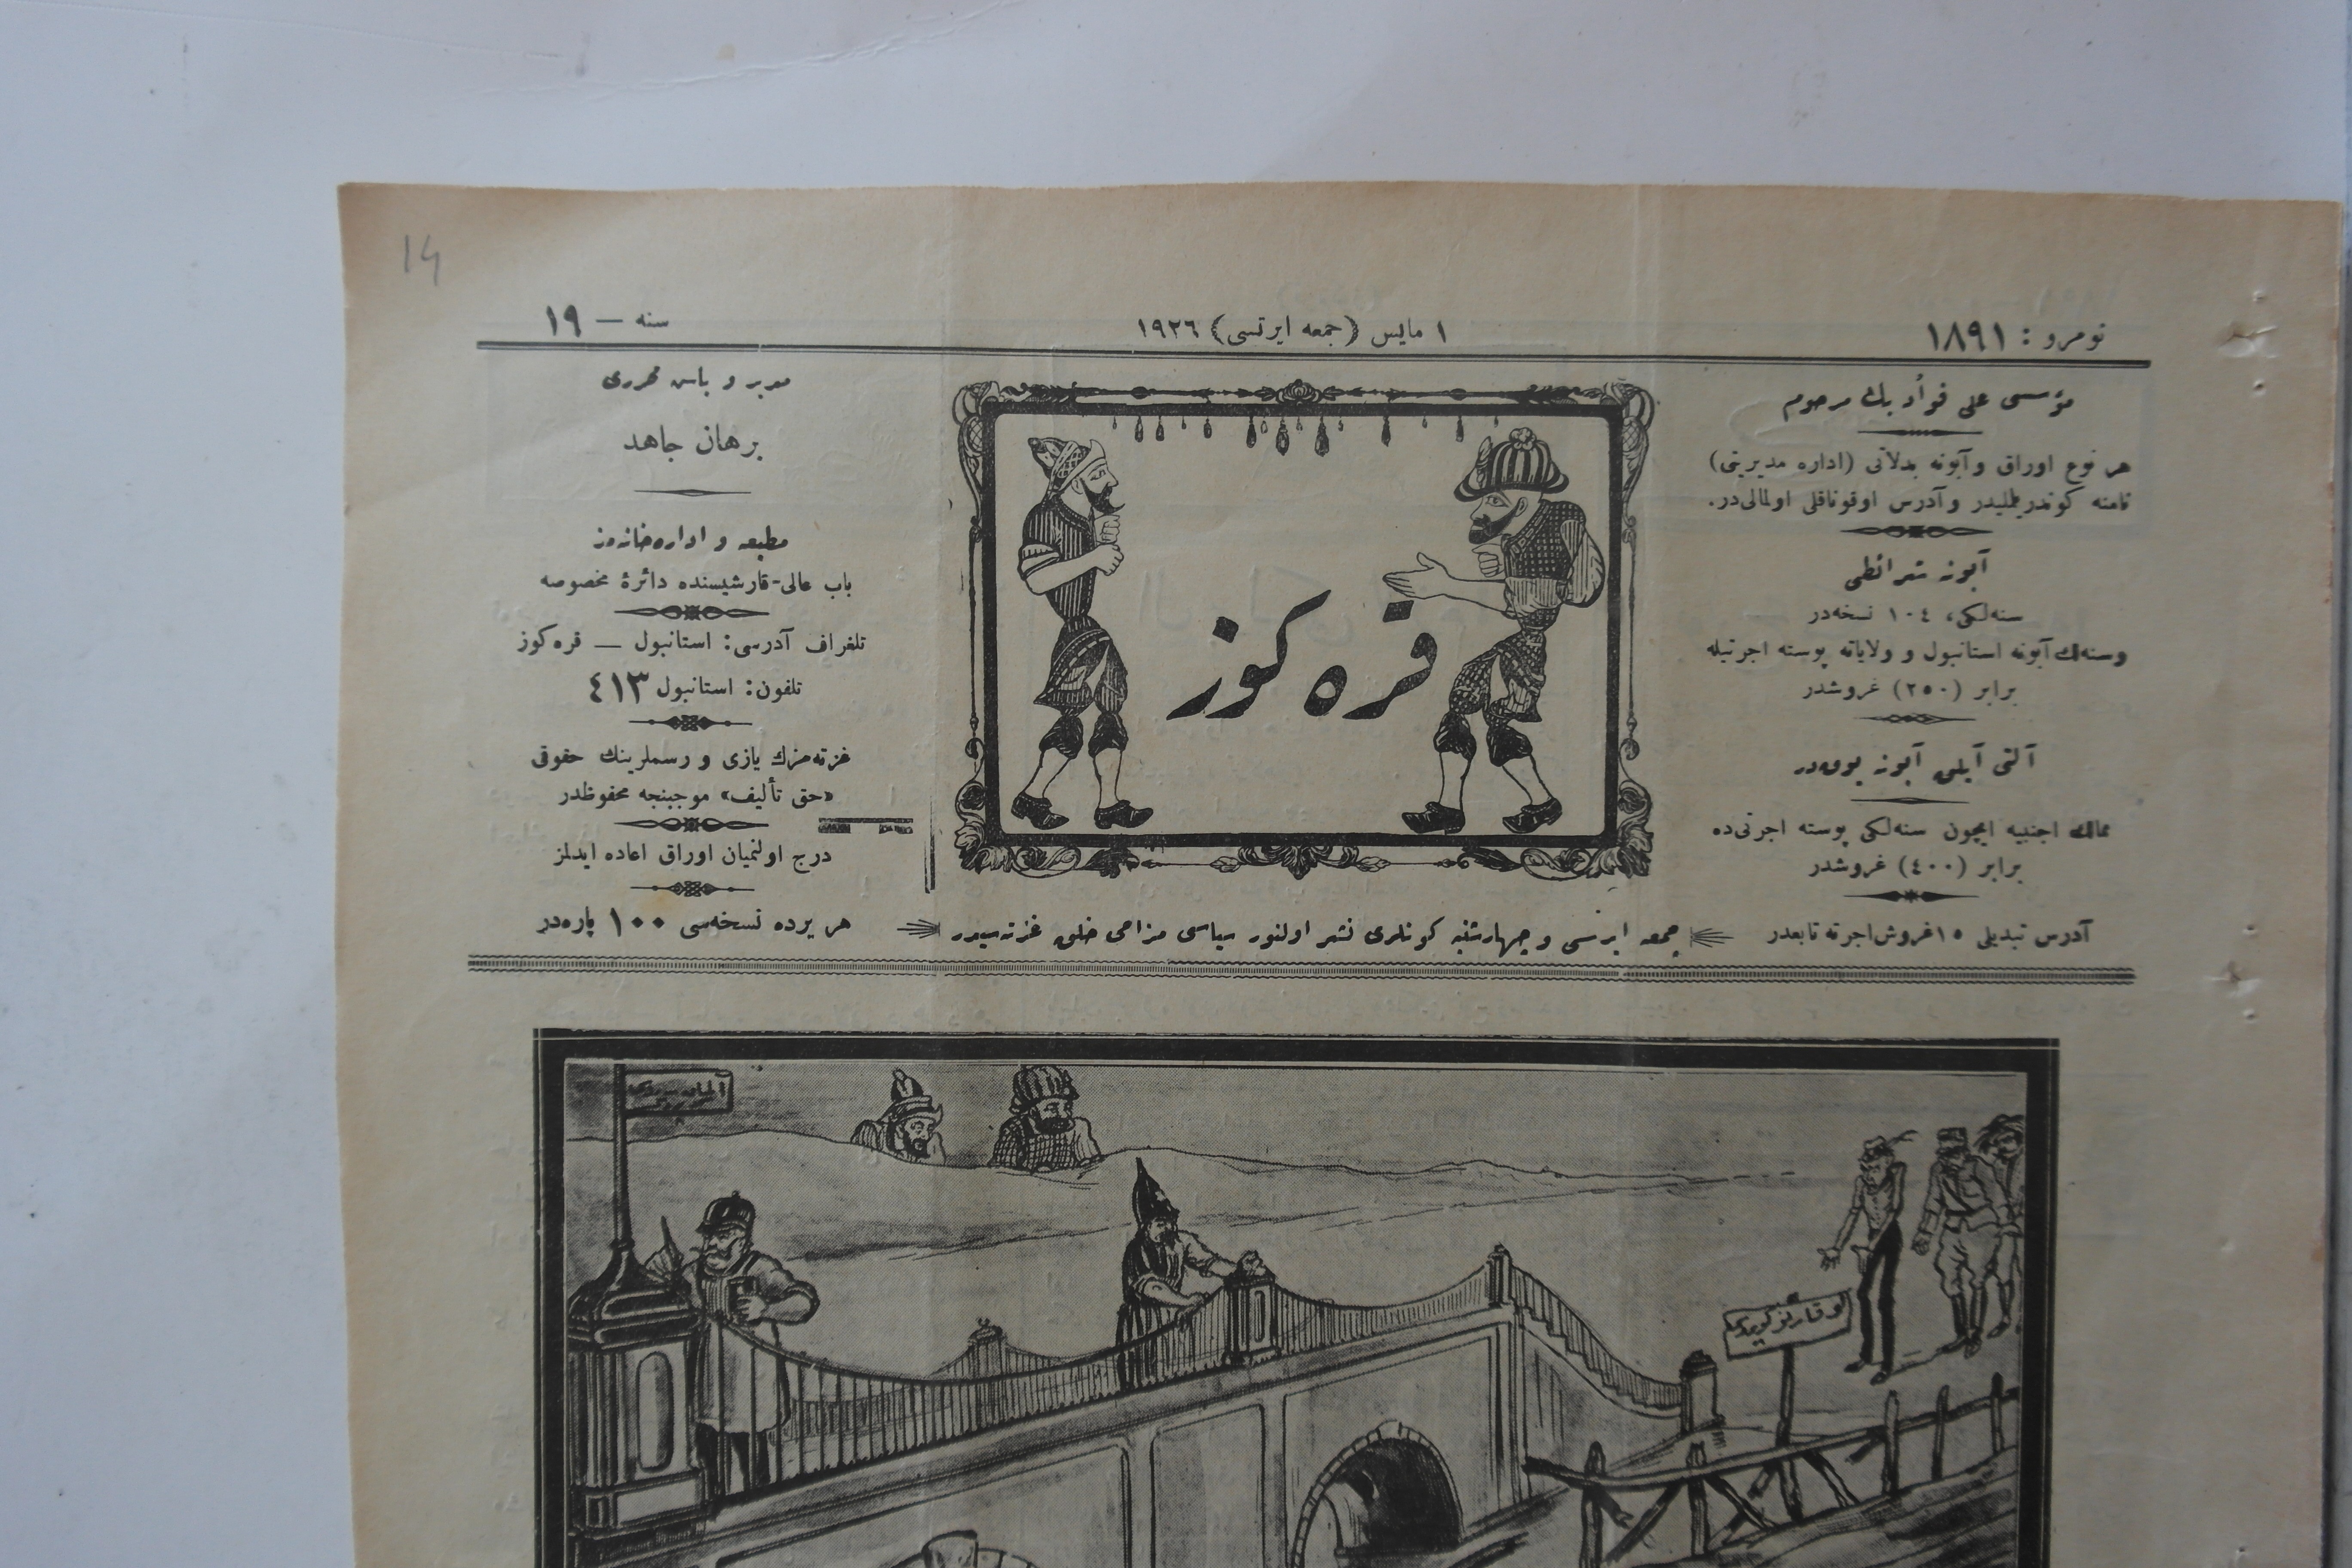 14
نومرو : ١٨٩١
١ مايس (جمعه ايرتسى) ١٩٢٦
سنه — ١٩
مؤسسى على فؤاد بك مرحوم
هر نوع اوراق و آبونه بدلاتى (اداره مديريتى)
نامنه كوندريلمليدر و آدرس اوقوناقلى اولمالى‌در.
آبونه شرائطى
سنه‌لكى، ١٠٤ نسخه‌در
و سنه‌لك آبونه استانبول و ولاياته پوسته اجرتيله
برابر (٢٥٠) غروشدر
آلتى آيلق آبونه يوقدر
ممالك اجنبيه ايچون سنه‌لكى پوسته اجرتى‌ده
برابر (٤٠٠) غروشدر
آدرس تبديلى ١٥ غروش اجرته تابعدر
قره كوز
جمعه ايرتسى و چهارشنبه كونلرى نشر اولنور سياسى مزاحى خلق غزته‌سيدر
مدير و باش محررى
برهان جاهد
مطبعه و اداره‌خانه‌مز
باب عالى-قارشيسنده دائرۀ مخصوصه
تلغراف آدرسى: استانبول — قره كوز
تلفون: استانبول ٤١٣
غزته‌مزك يازى و رسملرينك حقوقى
«حق تأليف» موجبنجه محفوظدر
درج اولنميان اوراق اعاده ايدلمز
هر يرده نسخه‌سى ١٠٠ پاره‌در